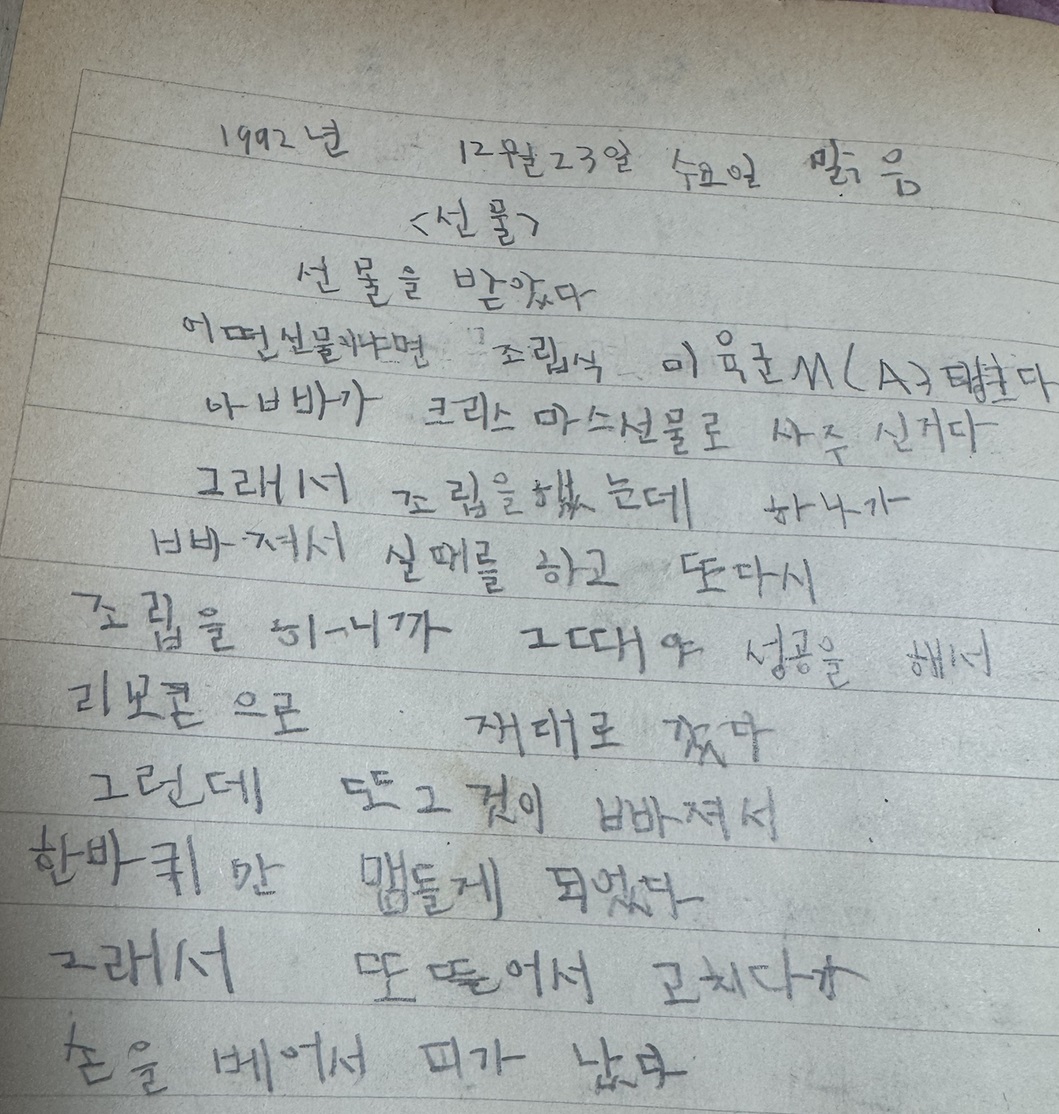 1992년 12월23일 수요일 맑음
<선물>
선물을 받았다
어떤선물이냐면 조립식 미 육군 M
아빠가 크리스마스선물로 사주 신거다
그래서 조립을 했는데 하나가
빠져서 실패를 하고 또다시
조립을 하니까 그때야 성공을 해서
리보콘으로 재대로 갔다
그런데 또 그것이 빠져서
한바퀴만 맴돌게 되었다
그래서 또 뜰어서 고치다가
손을 베어서 피가 났다